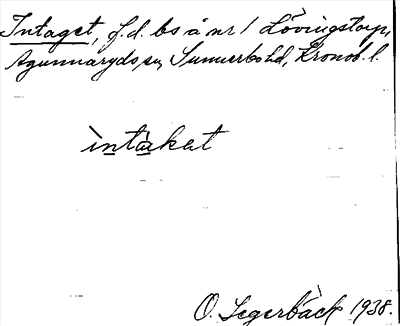 Intaget, f.d. bs å nr 1 Lövingstorp,
Agunnaryds sn, Sunnerbo hd, Kronob. l.
ìntàkat
O. Segerbäck 1938.